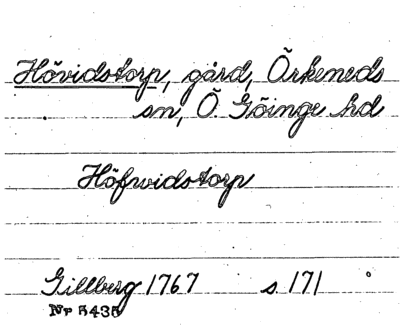 Hövidstorp, gård, Örkeneds
sn, Ö. Göinge hd
Höfwidstorp
Gillberg 1767 s. 171
Nr 5435